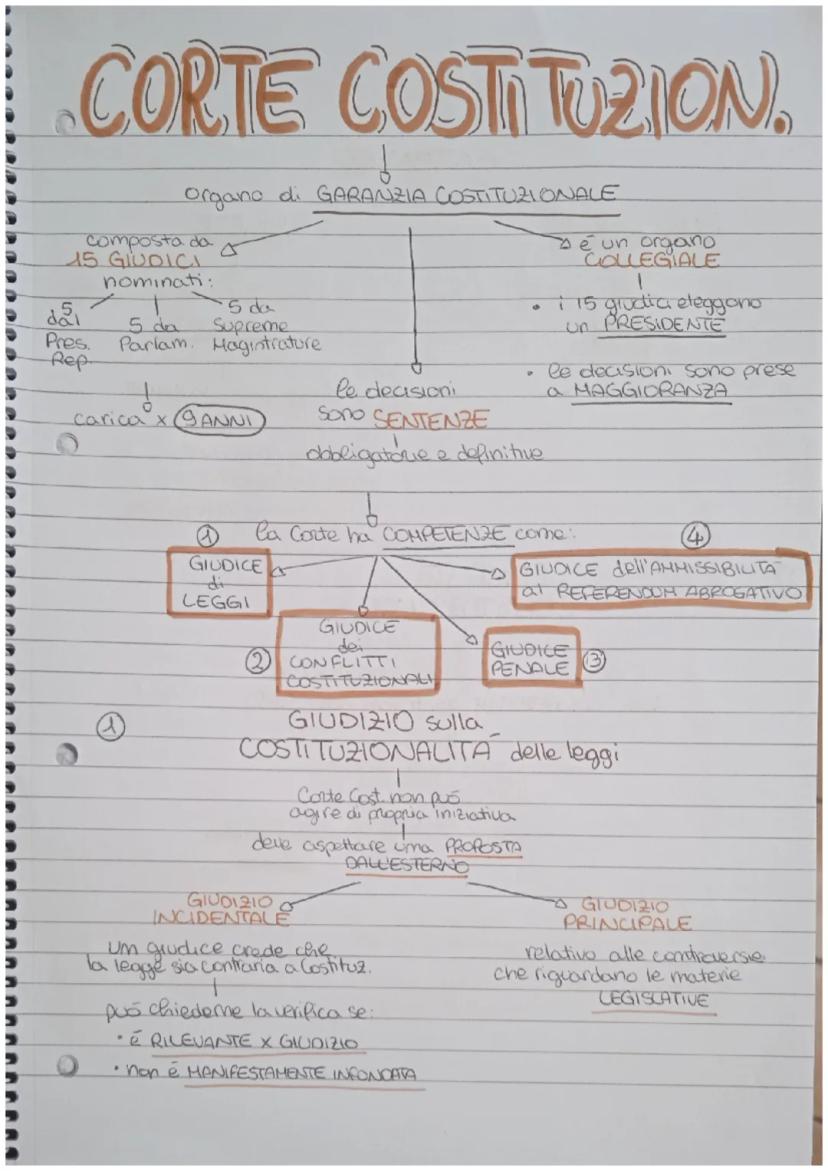 CORTE COSTITUZION.
organo di GARANZIA COSTITUZIONALE
composta da
15 GIUDICI
nominati:
5
dal
Pres.
Rep.
5 da
Parlam.
5 da
Supreme
Magistrature
carica x 9 ANNI
le decisioni
sono SENTENZE
obbligatorie e definitive
é un organo
COLLEGIALE
• i 15 giudici eleggono
un PRESIDENTE
• le decisioni sono prese
a MAGGIORANZA
la Corte ha COMPETENZE come:
1
GIUDICE
di
LEGGI
2
GIUDICE
dei
CONFLITTI
COSTITUZIONALI
GIUDICE
PENALE
3
4
GIUDICE dell'AMMISSIBILITÁ
al REFERENDUM ABROGATIVO
1
GIUDIZIO sulla
COSTITUZIONALITÁ delle leggi
Corte Cost. non puó
agire di propria iniziativa
deve aspettare una PROPOSTA
DALL'ESTERNO
GIUDIZIO
INCIDENTALE
um giudice crede che
la legge sia contraria a Costituz.
puó chiederne la verifica se:
• é RILEVANTE x GIUDIZIO
• non é MANIFESTAMENTE INFONDATA
GIUDIZIO
PRINCIPALE
relativo alle controversie
che riguardano le materie
LEGISLATIVE